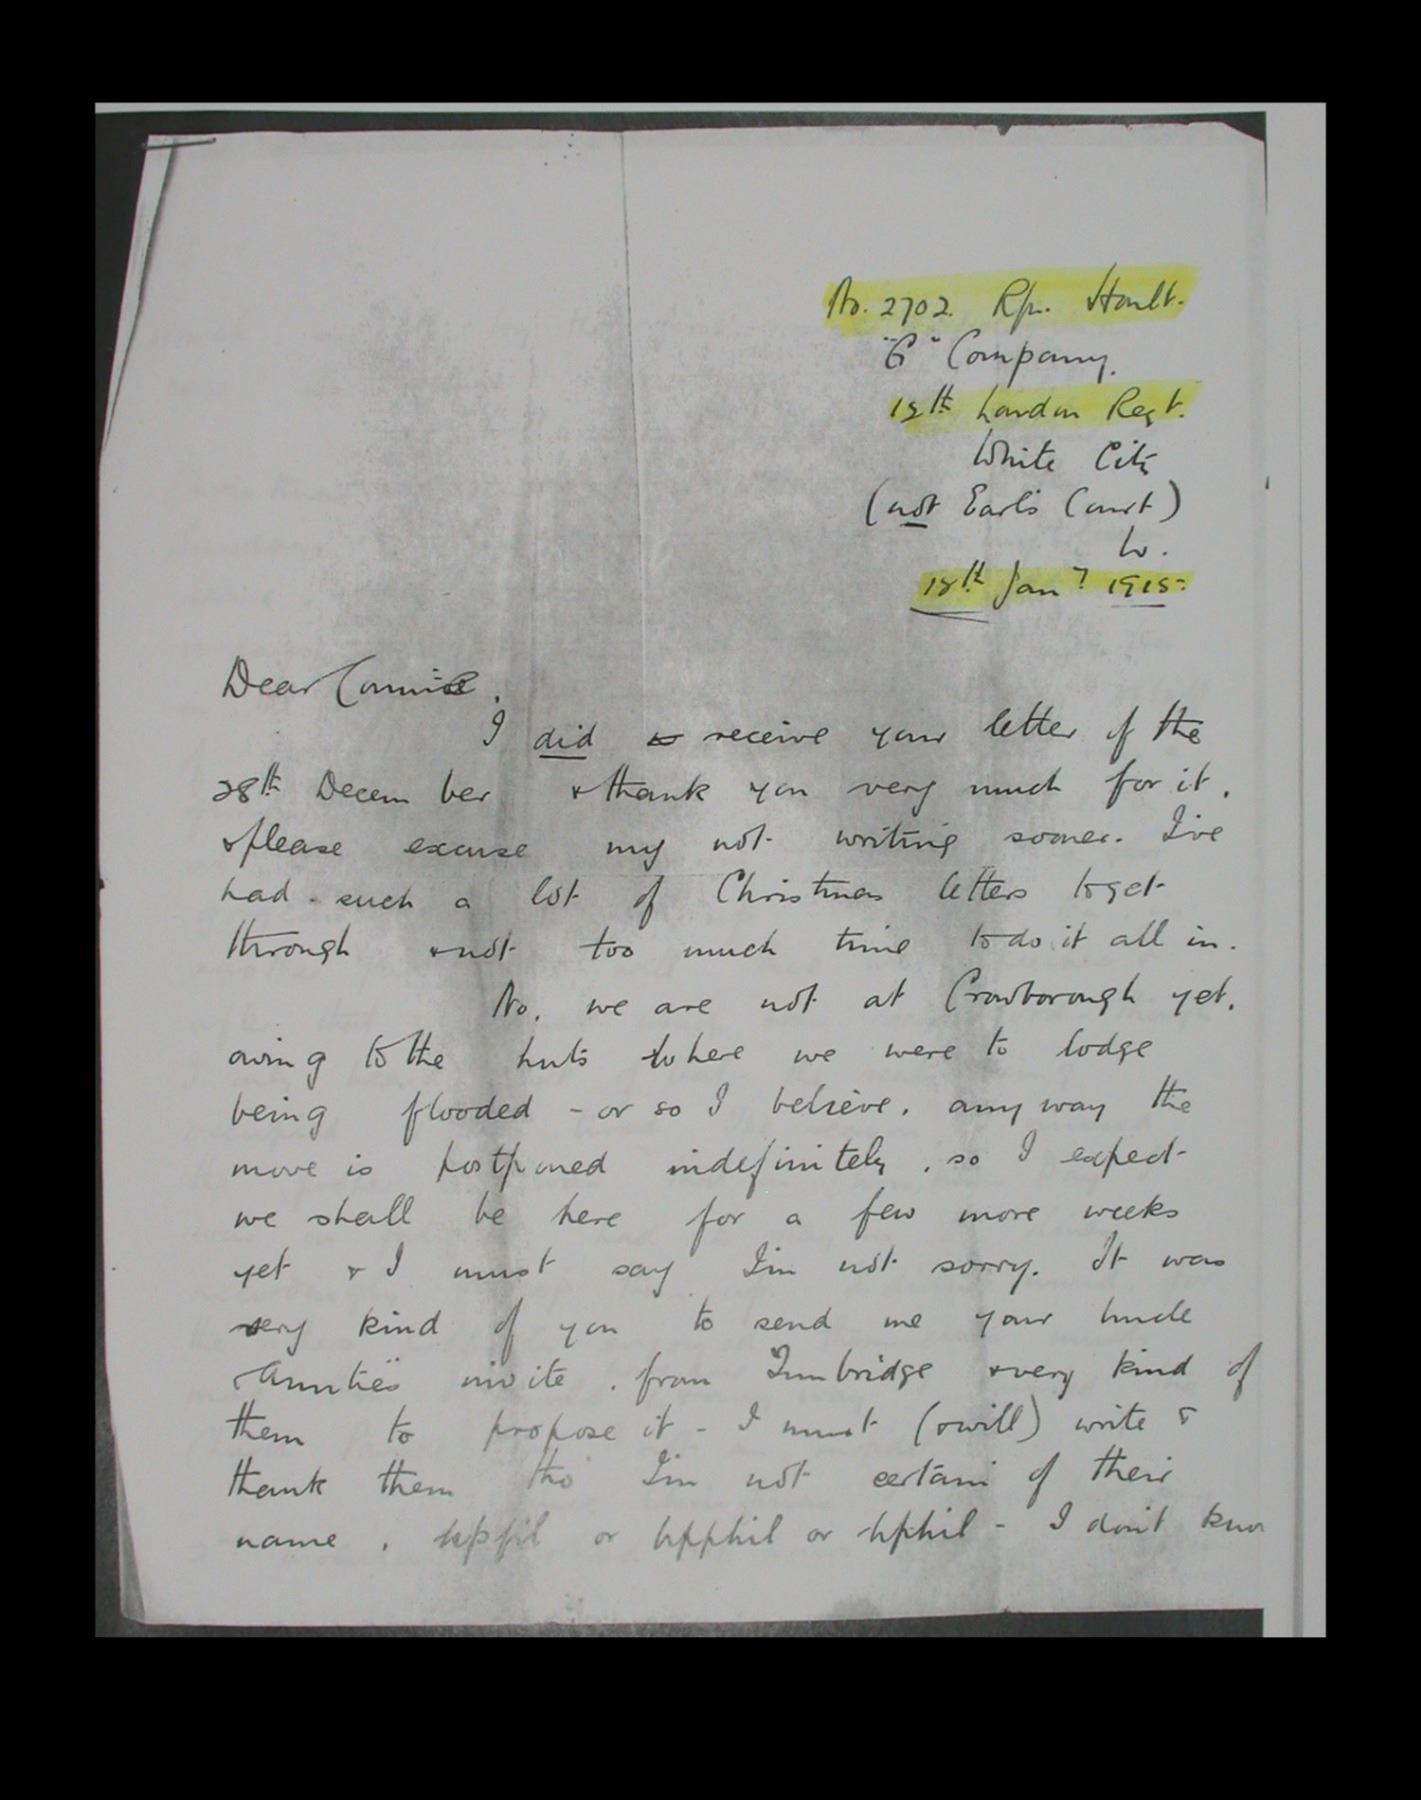 No. 2702. Rfn. Hoult.
"G" Company.
12th London Regt.
White City
(not Earl's Court)
W.
18th Jany 1915.
Dear Connie.
I did receive your letter of the
28th December & thank you very much for it,
& please excuse my not writing sooner. I've
had such a lot of Christmas letters to get
through & not too much time to do it all in.
No, we are not at Crowborough yet,
owing to the huts where we were to lodge
being flooded - or so I believe. any way the
move is postponed indefinitely, so I expect
we shall be here for a few more weeks
yet & I must say I'm not sorry. It was
very kind of you to send me your Uncle
Aunties invite, from Tunbridge & very kind of
them to propose it - I must (& will) write &
thank them tho' I'm not certain of their
name, or Upphil or Uphil - I don't know